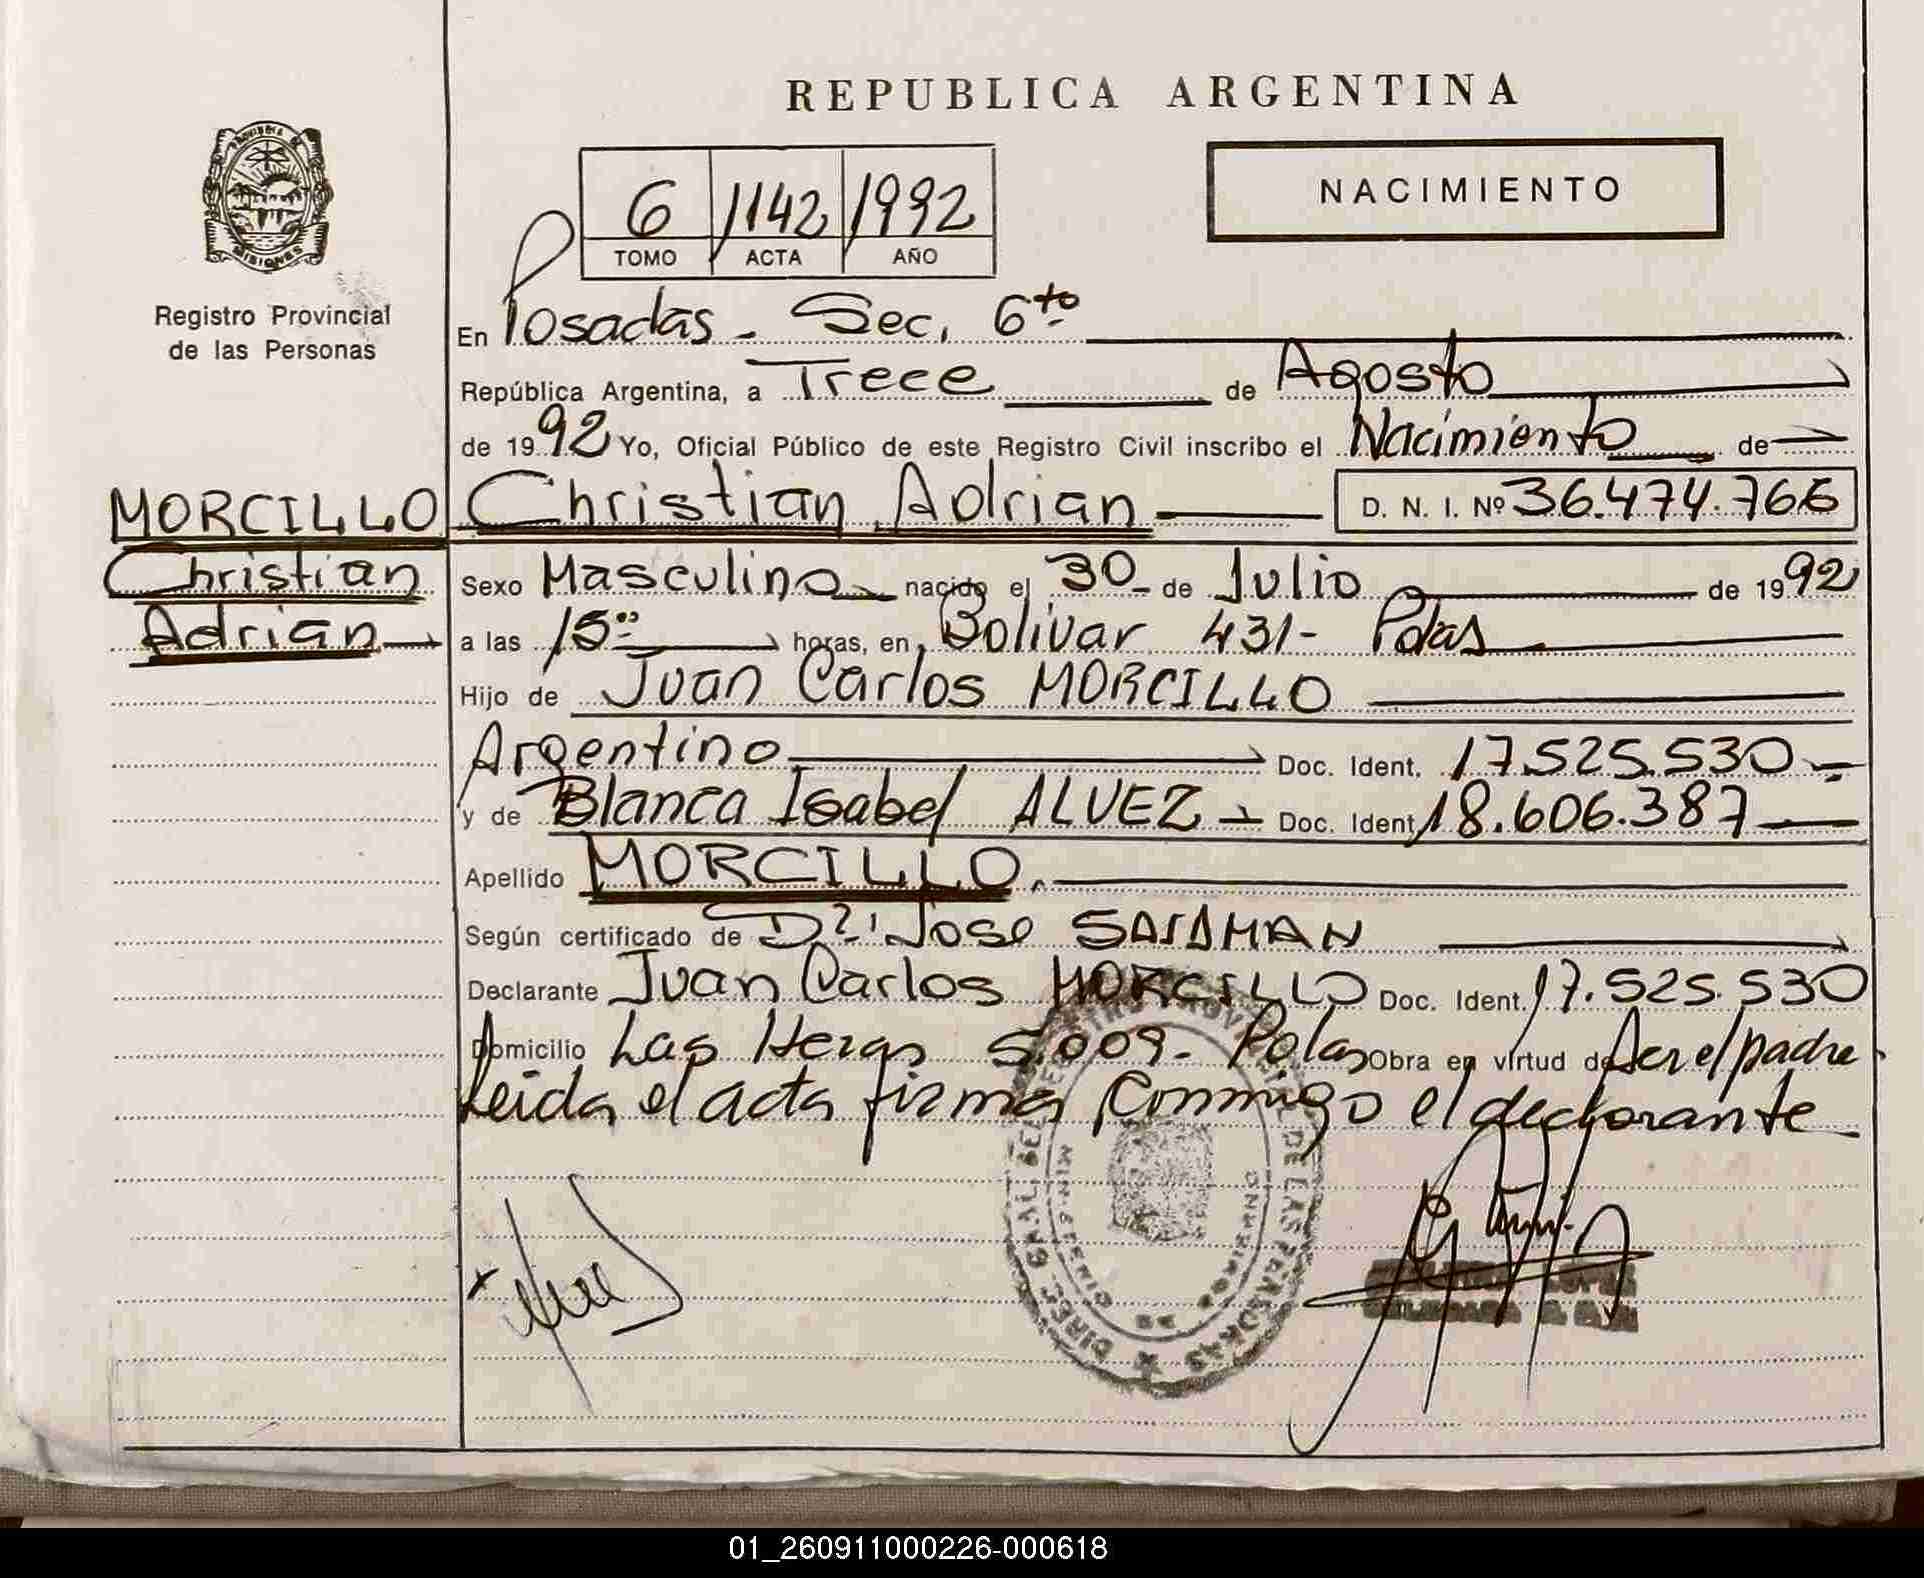 REPUBLICA ARGENTINA
NACIMIENTO
6 1142 1992
TOMO ACTA AÑO
PROVINCIA
MISIONES
Registro Provincial
de las Personas
En Posadas - Sec. 6to
República Argentina, a Trece de Agosto
de 1992 Yo, Oficial Público de este Registro Civil inscribo el Nacimiento de
MORCILLO Christian Adrian D. N. I. Nº 36.474.766
Christian
Adrian
Sexo Masculino nacido el 30 de Julio de 1992
a las 15oo horas, en Bolivar 431 - Pdas
Hijo de Juan Carlos MORCILLO
Argentino Doc. Ident. 17.525.530
y de Blanca Isabel ALVEZ Doc. Ident. 18.606.387
Apellido MORCILLO
Según certificado de Dr. Jose
Declarante Juan Carlos MORCILLO Doc. Ident. 17.525.530
Domicilio Las Heras 5.009 - Pdas Obra en virtud de Ser el padre
Leida el acta firma conmigo el declarante
DIREC. GRAL. DEL REGISTRO PROVINCIAL DE LAS PERSONAS
01_260911000226-000618